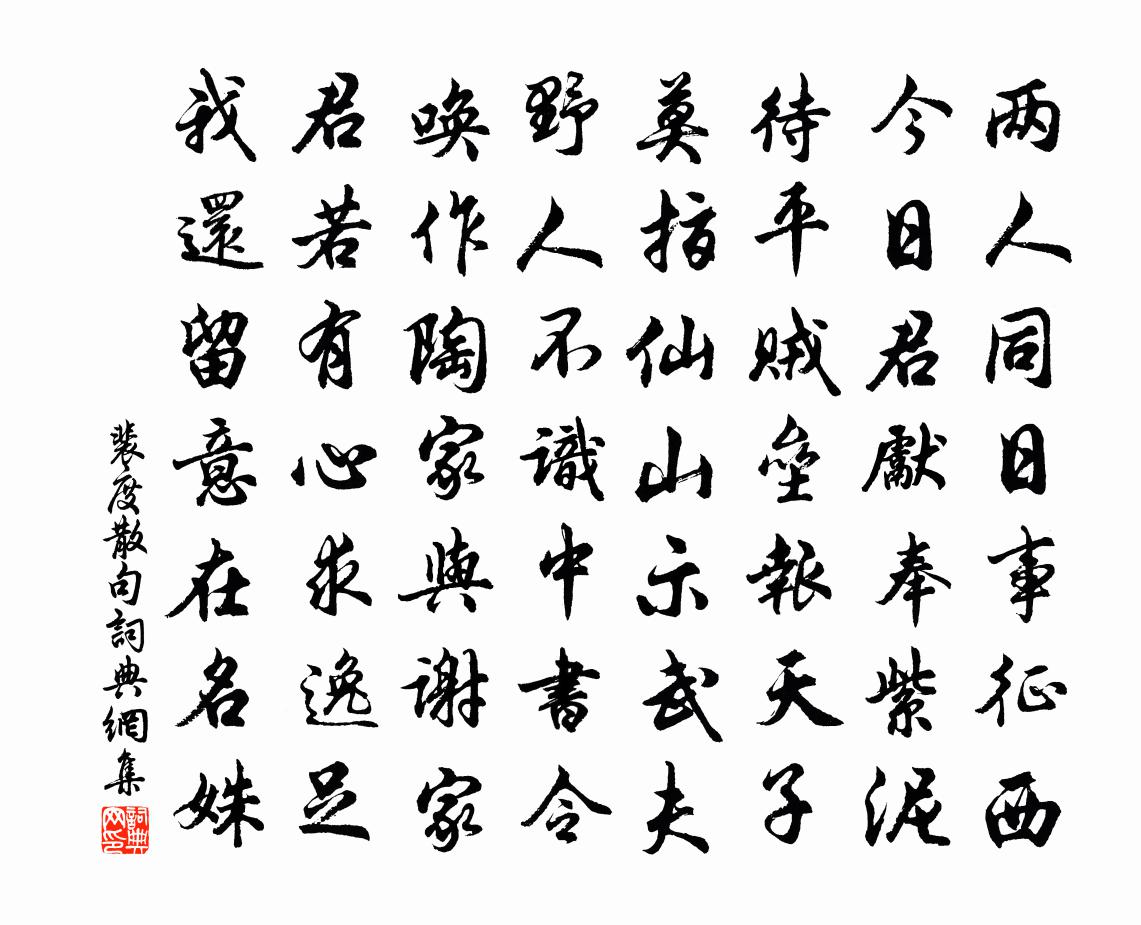 两人同日事征西
今日君獻奉紫泥
待平賊壘報天子
莫指仙山示武夫
野人不識中書令
喚作陶家與謝家
君若有心求逸足
我還留意在名姝
裴度散句詞典網集
詞典网印